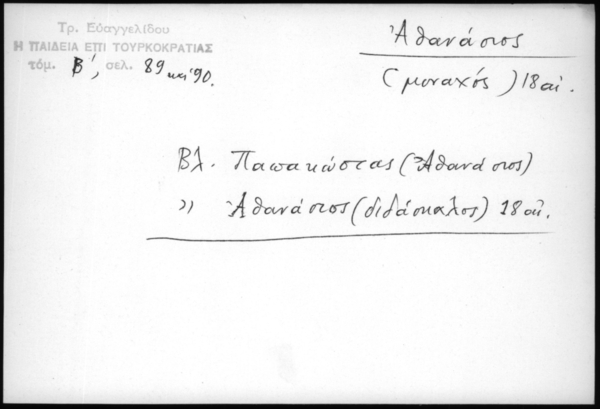 Τρ. Εὐαγγελίδου
Η ΠΑΙΔΕΙΑ ΕΠΙ ΤΟΥΡΚΟΚΡΑΤΙΑΣ
τόμ. Β', σελ. 89 και 90.
Ἀθανάσιος
(μοναχός) 18 αἰ.
Βλ. Παπακώστας (Ἀθανάσιος)
» Ἀθανάσιος (διδάσκαλος) 18 αἰ.